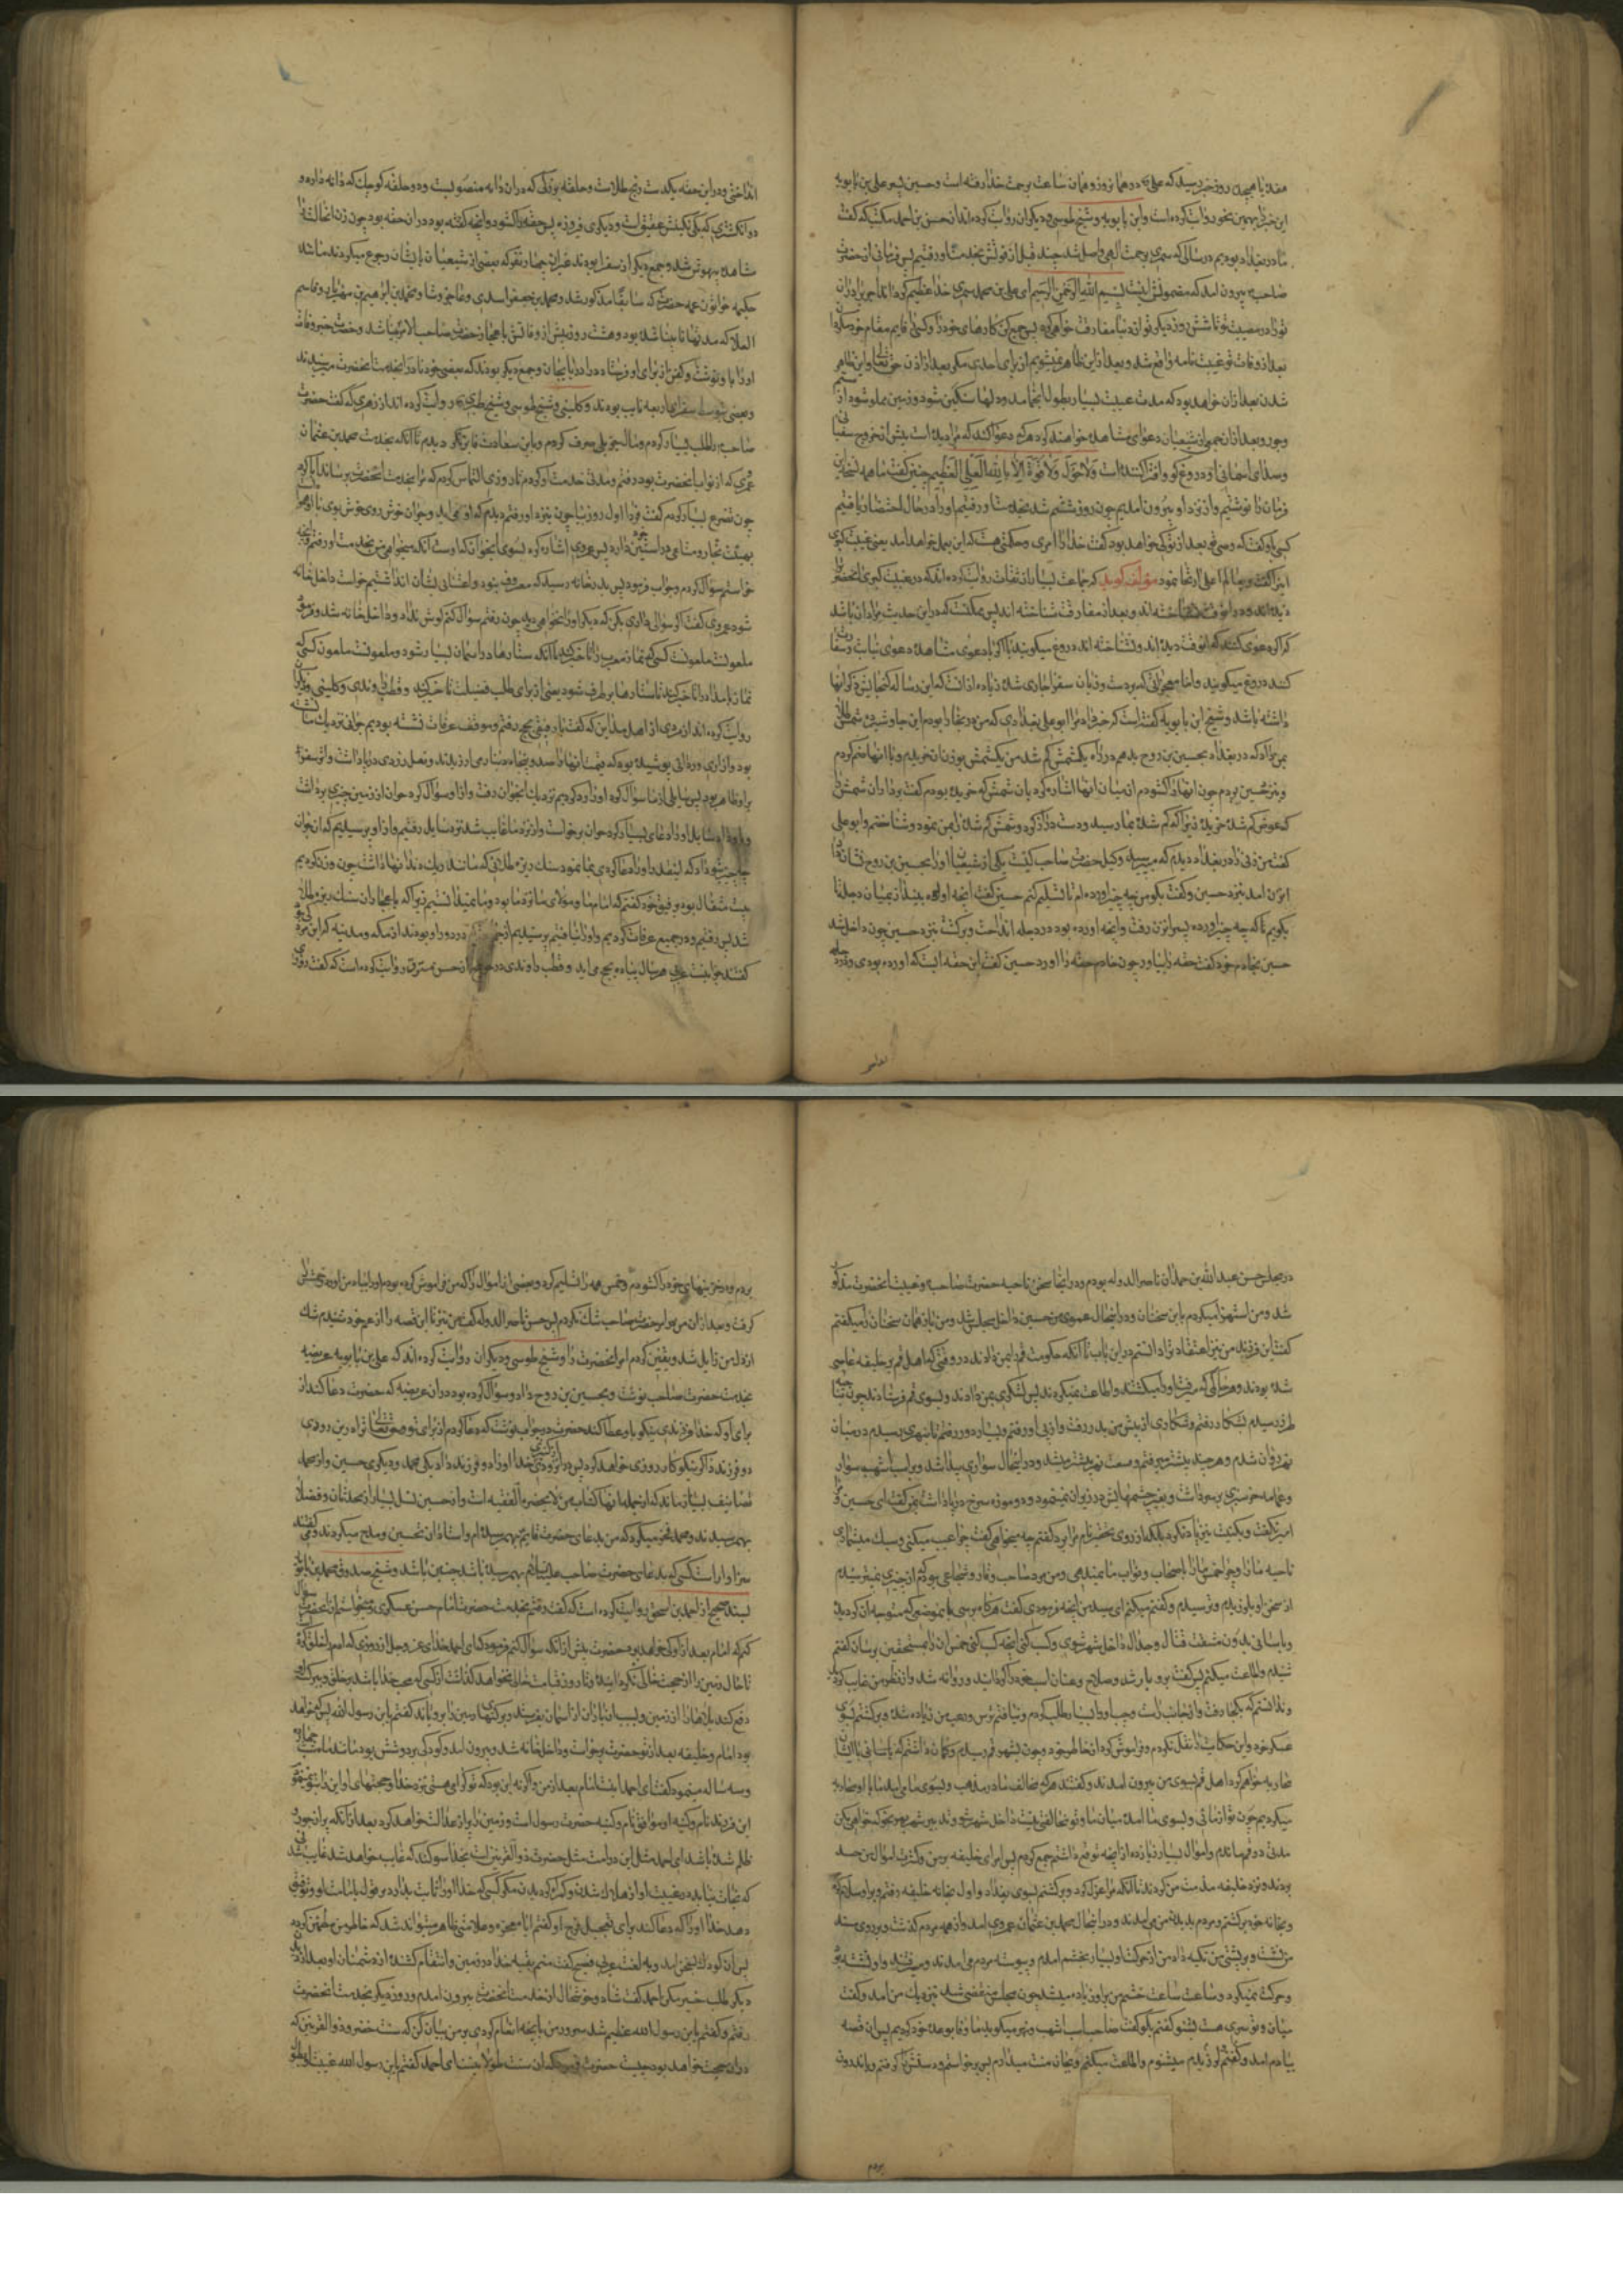 هفده یا هیجده روز خبر رسید که علی در همان روز و همان ساعت برحمت خدا رفته است و حسین پسر علی بن بابویه
این خبر را بهمین نحو روایت کرده است و ابن بابویه و شیخ طوسی و دیگران روایت کرده اند از حسن بن احمد مکتب که گفت
ما در بغداد بودیم در سالی که سمری برحمت الهی واصل شد چند قبل از فوتش بخدمت او رفتیم پس فرمانی از حضرت
صاحب بیرون آمد که مضمونش اینست بسم الله الرحمن الرحیم ای علی بن محمد سمری خدا عظیم گرداند اجر برادران
تو را در مصیبت تو تا شش روز دیگر تو از دنیا مفارقت خواهی کرد پس جمع کن کارهای خود را و کسی را قایم مقام خود مکن
بعد از وفات تو غیبت تامه واقع شد و بعد از این ظاهر نمیشویم از برای احدی مگر بعد از اذن حق تعالی و این ظاهر
شدن بعد از آن خواهد بود که مدت غیبت بسیار بطول انجامد و دلها سنگین شود و زمین مملو شود از
جور و بعد از آن جمعی از شیعیان دعوای مشاهده خواهند کرد هر که دعوا کند که مرا دیده است پیش از خروج سفیانی
و صدای آسمانی او دروغ گو و افترا کننده است ولا حول ولا قوة الا بالله العلی العظیم حسن گفت ما همه نسخه این
فرمان را نوشتیم و از نزد او بیرون آمدیم چون روز ششم شد بخدمت او رفتیم او را در حال احتضار یافتیم
کسی باو گفت که وصی تو بعد از تو کی خواهد بود گفت خدا را امری و حکمتی هست که این بعمل خواهد آمد یعنی غیبت کبری
این را گفت و بعالم اعلی ارتحال نمود مؤلف گوید که جماعت بسیار از ثقات روایت کرده اند که در غیبت کبری آنحضرت را
دیده اند و در آنوقت نشناخته اند و بعد از مفارقت شناخته اند پس ممکنست که در این حدیث مراد آن باشد
کند دروغ میگویند و اما معجزاتی که بر دست و زبان سفرا جاری شده زیاده از آنست که این رساله گنجایش ذکر آنها
داشته باشد و شیخ ابن بابویه گفته است که خبر داد مرا ابو علی بغدادی که من در بخارا بودم ابن جاوشیر ده شمش طلا
بمن داد که در بغداد بحسین بن روح بدهم در راه یک شمش گم شد من یک شمش بوزن آن خریدم و با آنها ضم کردم
و بنزد حسین بردم چون آنها را گشودم از میان آنها اشاره کرد بآن شمش که خریده بودم گفت بردار آن شمش را
که عوض گم شده خریدی زیرا که گم شده بما رسید و دست دراز کرد و شمش گم شده را بمن نمود و شناختم و ابو علی
گفت من زنی را در بغداد دیدم که میپرسید وکیل حضرت صاحب کیست یکی از شیعیان او را بحسین بن روح نشان داد
آن زن آمد بنزد حسین و گفت بگو من چه چیز آورده ام تا تسلیم کنم حسین گفت آنچه آورده بینداز بمیان دجله تا
بگویم تا که چه چیز آورده پس آن زن رفت و آنچه آورده بود در دجله انداخت و برگشت بنزد حسین چون داخل شد
حسین بخادم خود گفت حقه را بیاور چون خادم حقه را آورد حسین گفت این حقه ایست که آورده بودی و در دجله
انداختی و در این حقه یکدست رنج طلاست و حلقه بزرگی که در آن دانه منصوبست و دو حلقه کوچک که دانه دارد و
دو انگشتری که یکی نگینش عقیق است و دیگری فیروزه پس حقه را گشود و آنچه گفته بود در آن حقه بود چون زن آنحالت را
مشاهده بیهوش شد و جمع دیگر از سفرا بودند غیر این چهار نفر که بعضی از شیعیان بایشان رجوع میکردند مانند
حکیمه خواتون عمه حضرت که سابقا مذکور شد و محمد بن جعفر اسدی و حاجز وشا و محمد بن ابراهیم بن مهزیار و قاسم
العلا که مدتها نابینا شده بود و هشت روز پیش از وفاتش باعجاز حضرت صاحب الامر بینا شد و حضرت خبر وفات
او را باو نوشت و کفن از برای او فرستاد در بلده آذربایجان و جمع دیگر بودند که بعضی خود نادرا بخدمت آنحضرت میرسیدند
و بعضی بتوسط سفرای اربعه نایب بودند و کلینی و شیخ طوسی و شیخ طبرسی روایت کرده اند از زهری که گفت حضرت
صاحب را طلب بسیار کردم و مال جزیلی صرف کردم و باین سعادت فایز نگردیدم تا آنکه بخدمت محمد بن عثمان
عمری که از نواب آنحضرت بود رفتم و مدتی خدمت او کردم تا روزی التماس کردم که مرا بخدمت آنحضرت برساند ابا کرد
چون تضرع بسیار کردم گفت فردا اول روز بیا چون بنزد او رفتم دیدم که او می آید و جوان خوش روی خوش بوی با او همراه
خواستم سؤال کردم و جواب فرمود پس بدر خانه رسید که معروف نبود و اعتنائی بشأن آن نداشتیم خواست داخل خانه
شود عمری گفت اگر سؤالی داری بکن که دیگر او را نخواهی دید چون رفتم سؤال کنم گوش نداد و داخل خانه شد و فرمود
ملعونست ملعونست کسی که نماز مغرب را تاخیر کند تا آنکه ستارها در آسمان بسیار شود و ملعونست ملعون کسی که
نماز بامداد را تاخیر کند تا ستارها برطرف شود یعنی از برای طلب فضیلت تاخیر کند و قطب راوندی و کلینی و دیگران
روایت کرده اند از مردی از اهل مداین که گفت با رفیقی بحج رفتم و در موقف عرفات نشسته بودیم جوانی نزدیک ما نشسته
بود و ازاری و ردائی پوشیده بود که قیمت آنها را صد و پنجاه دینار می ارزیدند و نعل زردی در پا داشت و اثر سفر
بر او ظاهر نبود پس سایلی از ما سؤال کرد او را رد کردیم نزدیک آنجوان رفت و از او سؤال کرد جوان از زمین چیزی برداشت
و باو داد سایل او را دعای بسیار کرد جوان برخواست و از نزد ما غایب شد نزد سایل رفتیم و از او پرسیدیم که آن جوان
چه چیز بتو داد که اینقدر او را دعا کردی بما نمود سنگ ریزه طلائی که مانند ریگ دندانها داشت چون وزن کردیم
بیست مثقال بود برفیق خود گفتم که امام ما و مولای ما نزد ما بود و ما نمیدانستیم زیرا که باعجاز آن سنگ ریزه طلا
شد پس رفتیم و در جمیع عرفات گردیدیم و او را نیافتیم
گفتند جوانیست علوی هر سال پیاده بحج می آید و قطب راوندی در خرایج از حسن مسترق روایت کرده است که گفت روزی
در مجلس حسن عبدالله بن حمدان ناصر الدوله بودم و در آنجا سخن ناحیه حضرت صاحب و غیبت آنحضرت مذکور
شد و من استهزا میکردم باین سخنان و در اینحال عموی من حسین داخل مجلس شد و من باز همان سخنان را میگفتم
گفت ای فرزند من نیز اعتقاد تو را داشتم در این باب تا آنکه حکومت قم را بمن دادند در وقتی که اهل قم بر خلیفه عاصی
شده بودند و هر حاکمی که میرفت او را میکشتند و اطاعت نمیکردند پس لشکری بمن دادند و بسوی قم فرستادند چون بناحیه
طرز رسیدم بشکار رفتم و شکاری از پیش من بدر رفت و از پی او رفتم و بسیار دور رفتم تا بنهری رسیدم در میان
نهر روان شدم و هر چند بیشتر میرفتم وسعت نهر بیشتر میشد و در اینحال سواری پیدا شد و بر اسب اشهب سوار
و عمامه خز سبزی بر سر داشت و بغیر چشمهایش در زیر آن نمینمود و دو موزه سرخ در پا داشت بمن گفت ای حسین و مرا
امیر نگفت و بکنیت نیز یاد نکرد بلکه از روی تحقیر نام مرا برد گفتم چه میخواهی گفت چرا عیب میکنی و سبک میشماری
ناحیه ما را و چرا خمس مالت را باصحاب و نواب ما نمیدهی و من مرد صاحب وقار و شجاعی بودم که از چیزی نمیترسیدم
از سخن او بلرزیدم و ترسیدم و گفتم میکنم ای سید من آنچه فرمودی گفت هرگاه برسی بآنموضعی که متوجه آن گردیده
و باسانی بدون مشقت قتال و جدال داخل شهر شوی و کسب کنی آنچه کسب کنی خمس آن را بمستحقین برسان گفتم
شنیدم و اطاعت میکنم پس گفت برو با رشد و صلاح و عنان اسب خود را گردانید و روانه شد و از نظر من غایب گردید
و ندانستم که بکجا رفت و از جانب راست و چپ او را بسیار طلب کردم و نیافتم ترس و رعب من زیاده شد و برگشتم بسوی
عسکر خود و این حکایت را نقل نکردم و فراموش کردم از خاطر خود و چون بشهر قم رسیدم و گمان داشتم که با ایشان
محاربه خواهم کرد اهل قم بسوی من بیرون آمدند و گفتند هر که مخالف ما در مذهب و بسوی ما می آمد ما با او محاربه
میکردیم چون تو از مائی و بسوی ما آمده میان ما و تو مخالفتی نیست داخل شهر شو و تدبیر شهر بهر نحو که خواهی بکن
مدتی در قم ماندم و اموال بسیار زیاده از آنچه توقع داشتم جمع کردم پس امرای خلیفه بر من و کثرت اموال من حسد
بردند و نزد خلیفه مذمت من کردند تا آنکه مرا عزل کرد و برگشتم بسوی بغداد و اول بخانه خلیفه رفتم و بر او سلام کردم
و بخانه خود برگشتم و مردم بدیدن من می آمدند و در اینحال محمد بن عثمان عمروی آمد و از همه مردم گذشت و بر روی مسند
من نشست و بر پشتی من تکیه داد من از حرکت او بسیار بخشم آمدم و پیوسته مردم می آمدند و میرفتند و او نشسته بود
و حرکت نمیکرد و ساعت بساعت خشم من بر او زیاده میشد چون مجلس منقضی شد نزدیک من آمد و گفت
میان من و تو سری هست بشنو گفتم بگو گفت صاحب اسب اشهب و نهر میگوید ما وفا بوعده خود کردیم پس آن قصه
بیادم آمد و گفتم لرزیدم میشنوم و اطاعت میکنم و بجان منت میدارم پس برخواستم و دستش را گرفتم و باندرون
بردم و در خزینهای خود را گشودم و خمس همه را تسلیم کردم و بعضی از اموال را که من فراموش کرده بودم او بیاد من آورد و خمسش را
گرفت و بعد از آن من در امر حضرت صاحب شک نکردم پس حسن ناصر الدوله گفت من نیز تا این قصه را از عم خود شنیدم شک
از دل من زایل شد و یقین کردم امر آنحضرت را و شیخ طوسی و دیگران روایت کرده اند که علی بن بابویه عریضه
بخدمت حضرت صاحب نوشت و بحسین بن روح داد و سؤال کرده بود در آن عریضه که حضرت دعا کند از
برای او که خدا فرزندی نیکو باو عطا کند حضرت در جواب نوشت که دعا کردم از برای تو حق تعالی ترا در این زودی
دو فرزند ذکر نیکوکار روزی خواهد کرد پس در آن زودی خدا او را دو فرزند داد یکی محمد و دیگری حسین و از محمد
تصانیف بسیار ماند که از جمله آنها کتاب من لا یحضره الفقیه است و از حسین نسل بسیار از محدثان و فضلا
بهم رسیدند و محمد فخر میکرد که من بدعای حضرت قایم بهم رسیده ام و استادان تحسین و مدح میکردند و میگفتند
سزاوار است کسی که بدعای حضرت صاحب علیه السلام بهم رسیده باشد چنین باشد و شیخ صدوق محمد بن بابویه
بسند صحیح از احمد بن اسحق روایت کرده است که گفت رفتم بخدمت حضرت امام حسن عسکری و میخواستم از آنحضرت سؤال
کنم که امام بعد از او کی خواهد بود حضرت پیش از آنکه سؤال کنم فرمود که ای احمد خدای عز و جل از روزی که آدم را خلق کرده
تا حال زمین را از حجت خالی نگردانیده و تا روز قیامت خالی نخواهد گذاشت از کسی که حجت خدا باشد بر خلق و ببرکت او
دفع کند بلاها را از زمین و بسبب او باران از آسمان بفرستد و برکتهای زمین را برویاند گفتم یابن رسول الله پس کی خواهد
بود امام و خلیفه بعد از تو حضرت برخواست و داخل خانه شد و بیرون آمد و کودکی بر دوشش بود مانند ماه شب چهارده
و سه ساله مینمود گفت ای احمد اینست امام بعد از من و اگر نه این بود که تو گرامی هستی نزد خدا و حجتهای او این را بتو نمینمودم
این فرزند نام و کنیه او موافق نام و کنیه حضرت رسول است و زمین را پر از عدالت خواهد کرد بعد از آنکه پر از جور و
ظلم شده باشد ای احمد مثل این در این امت مثل حضرت ذو القرنین است بخدا سوگند که غایب خواهد شد غایب شدنی
که نجات نیابد در غیبت او از هلاک شدن و گمراه گردیدن مگر کسی که خدا او را ثابت بدارد بر قول بامامت او و توفیق
دهد خدا او را که دعا کند برای تعجیل فرج او گفتم آیا معجزه و علامتی ظاهر میتواند شد که خاطر من مطمئن گردد
پس آن کودک بسخن آمد و بلغت عربی فصیح گفت منم بقیه خدا در زمین و انتقام کشنده از دشمنان او بعد از دیدن
دیگر طلب خبر مکن احمد گفت شاد و خوشحال از خدمت آنحضرت بیرون آمدم و روز دیگر بخدمت آنحضرت
رفتم و گفتم یابن رسول الله عظیم شد سرور من بآنچه انعام کردی بر من بیان کن که سنت خضر و ذو القرنین که
در آن حجت خواهد بود چیست حضرت فرمود که آن سنت طول غیبتست ای احمد گفتم یابن رسول الله غیبت او بطول